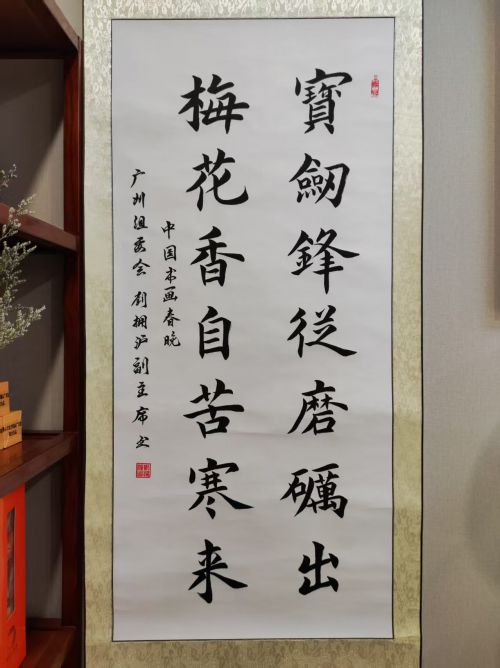 寶劒鋒從磨礪出
梅花香自苦寒来
中国书画春晚
广州组委会 刘拥沪副主席书